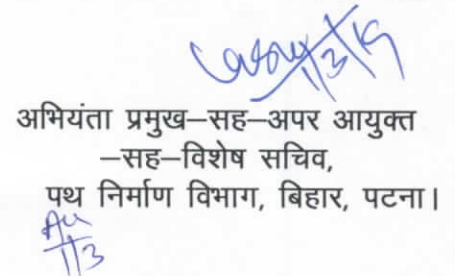 1/3/19
अभियंता प्रमुख–सह–अपर आयुक्त
–सह–विशेष सचिव,
पथ निर्माण विभाग, बिहार, पटना।
1/3